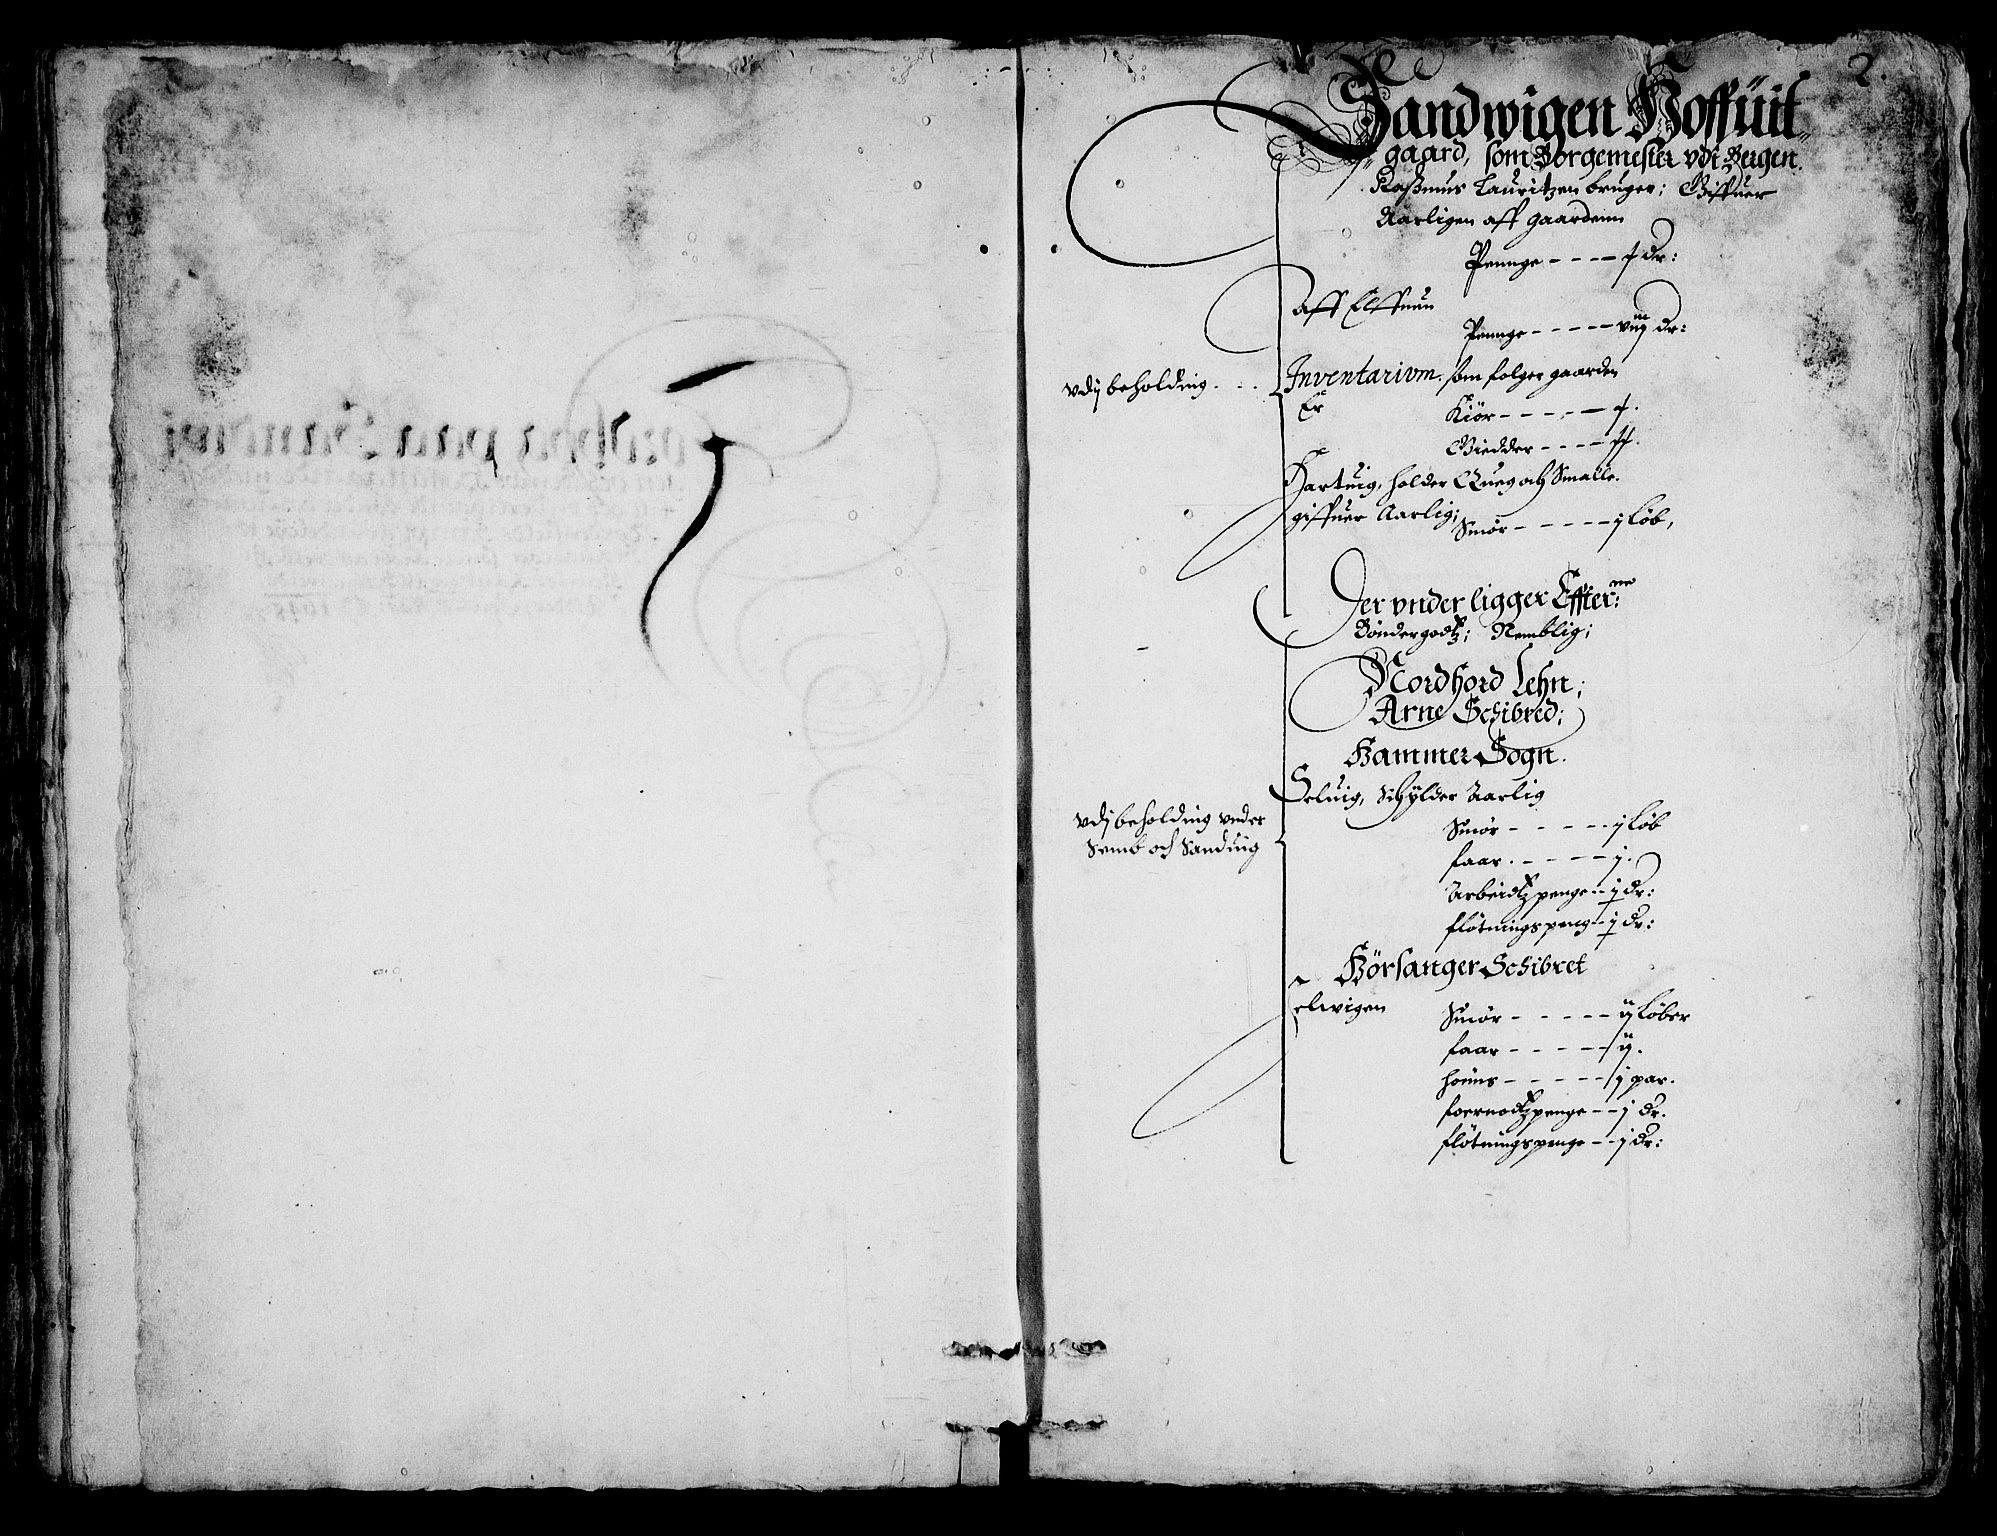 2.
Sandwigen Hoffüit„
„gaard, som Borgemester vdi Bergen.
Raßmus Lauritzen bruger; Giffuer
Aarligen aff gaardenn
Pennge - - - - dr:
aff Elffuen
Pennge - - - - - dr:
vdj beholding. . . .
Inventarium. som følger gaarden
Er Kiör - - - - -
Giedder - - - -
Hartuig, holder Queg och Smalle.
giffuer Aarlig;
Smör - - - - - j Løb,
Der vnder ligger Effter:ne
Böndergodtz; Nemblig;
Nordhord Lehn;
Arne Schibred;
Hammer Sogn.
Seluig, Schylder Aarlig
vdj beholding vnder
Semb och Sanduig
Smör - - - - - j Løb
faar. - - - - j.
Arbeidtzpenge - - j dr:
fløtningspeng - - j dr:
Hörsanger Schibret
elwigen
Smör - - - - - ij Løber
faar - - - - - ij.
höuns - - - - - j par.
foernodtzpenge - - j dr.
fløtningspenge - - j dr: